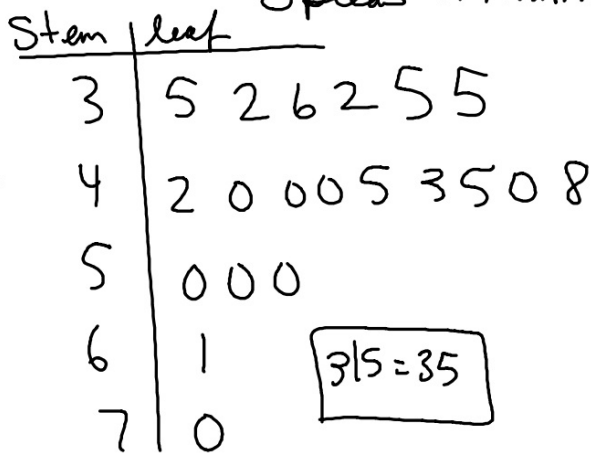 Stem | leaf
3 | 5 2 6 2 5 5
4 | 2 0 0 0 5 3 5 0 8
5 | 0 0 0
6 | 1
3|5 = 35
7 | 0